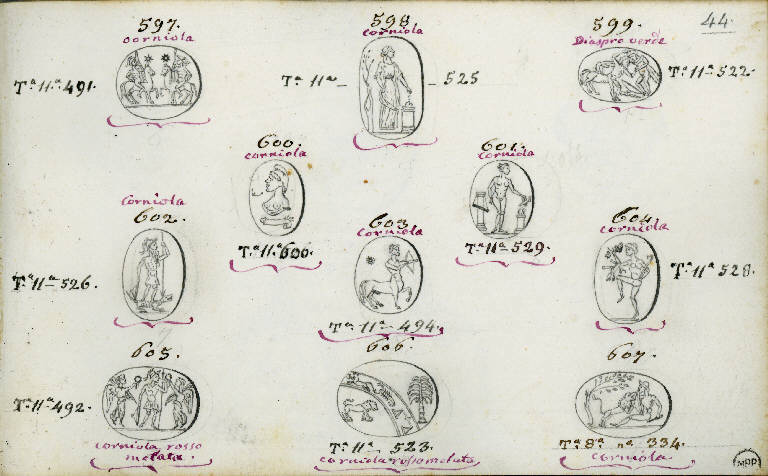 44.
597.
corniola
Tª 11ª 491.
598.
corniola
Tª 11ª - 525
599.
Diaspro verde
Tª 11ª 522.
600.
corniola
Tª 11ª 600.
601.
corniola
Tª 11ª 529.
corniola
602.
Tª 11ª 526.
603.
corniola
Tª 11ª 494.
604.
corniola
Tª 11ª 528.
605.
Tª 11ª 492.
corniola rosso
melata
606.
Tª 11ª 523.
corniola rosso melata
607.
Tª 8ª nº 334.
corniola
MPP